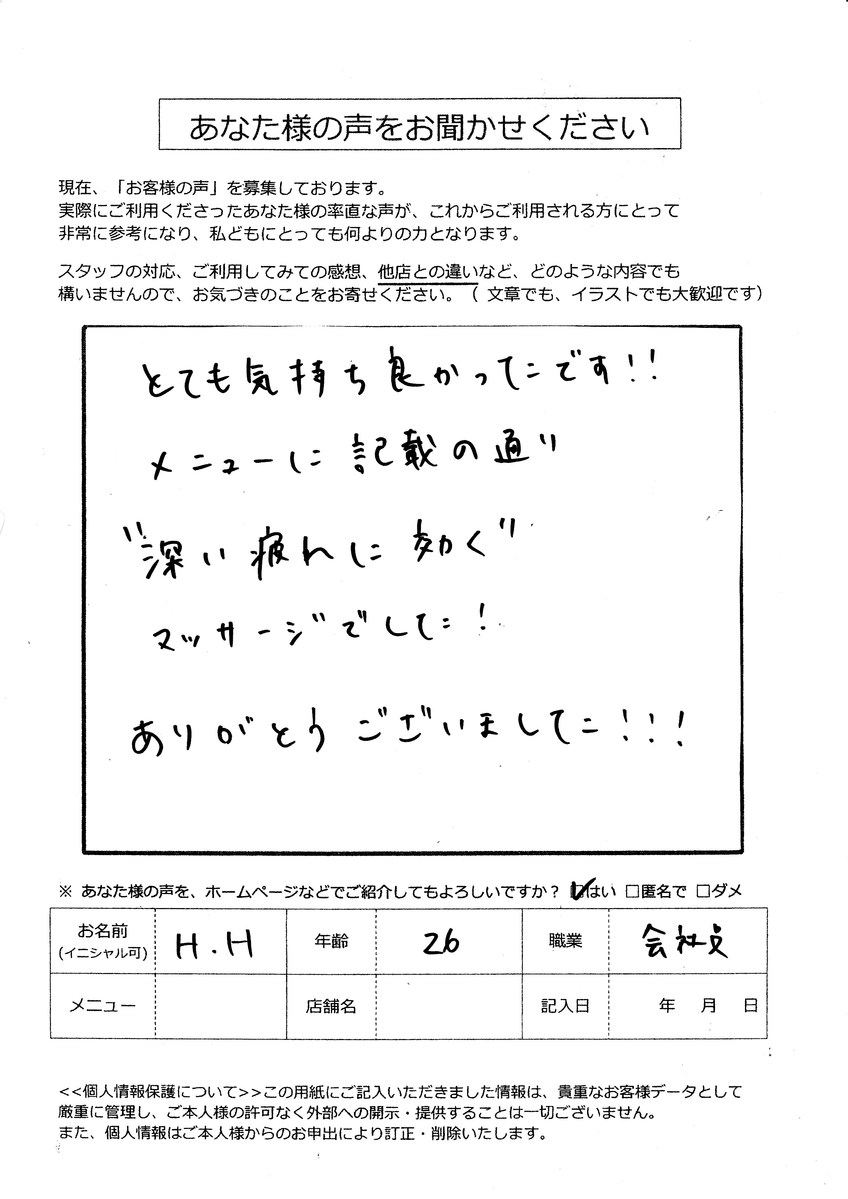 あなた様の声をお聞かせください
現在、「お客様の声」を募集しております。
実際にご利用くださったあなた様の率直な声が、これからご利用される方にとって
非常に参考になり、私どもにとっても何よりの力となります。
スタッフの対応、ご利用してみての感想、他店との違いなど、どのような内容でも
構いませんので、お気づきのことをお寄せください。（ 文章でも、イラストでも大歓迎です）
とても気持ち良かったです!!
メニューに記載の通り
"深い疲れに効く"
マッサージでした!
ありがとうございました!!!
※ あなた様の声を、ホームページなどでご紹介してもよろしいですか？ ☑はい □匿名で □ダメ
お名前 (イニシャル可) H.H 年齢 26 職業 会社員
メニュー 店舗名 記入日 年 月 日
<<個人情報保護について>>この用紙にご記入いただきました情報は、貴重なお客様データとして
厳重に管理し、ご本人様の許可なく外部への開示・提供することは一切ございません。
また、個人情報はご本人様からのお申出により訂正・削除いたします。